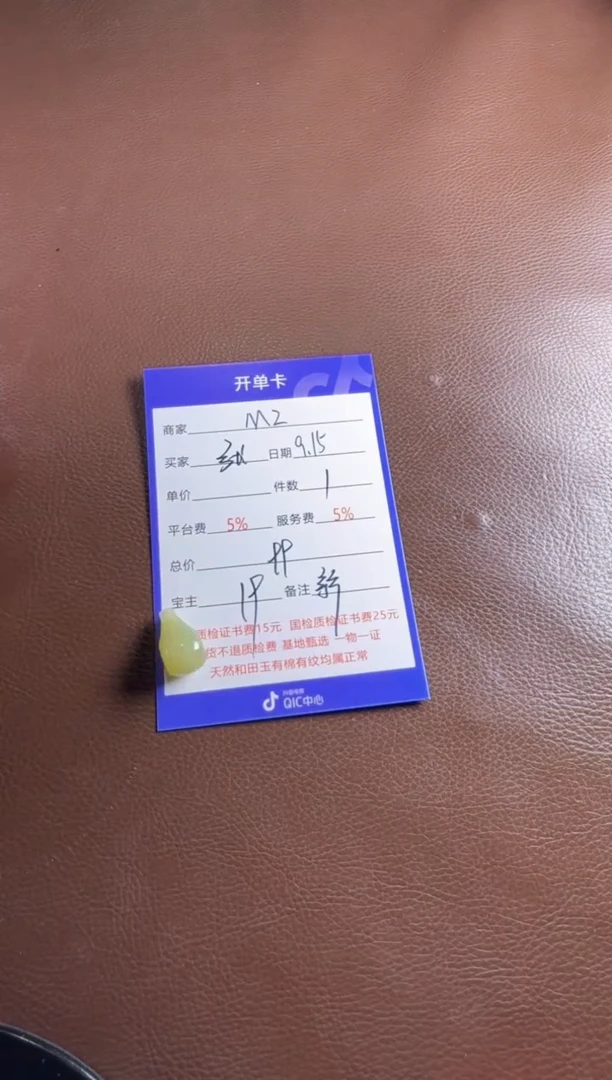 开单卡
商家 M2
买家 日期 9.15
单价 件数 1
平台费 5% 服务费 5%
总价
宝主 备注
质检证书费15元 国检质检证书费25元
货不退质检费 基地甄选 一物一证
天然和田玉有棉有纹均属正常
抖音电商
QIC中心